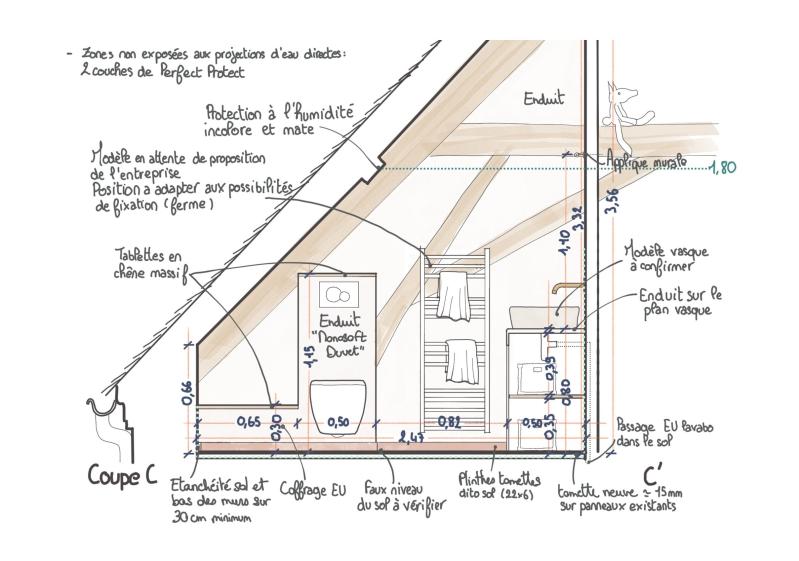 - Zones non exposées aux projections d'eau directes:
2 couches de Perfect Protect
Protection à l'humidité
incolore et mate
Enduit
Modèle en attente de proposition
de l'entreprise
Position a adapter aux possibilités
de fixation (ferme)
Applique murale
1,80
3,56
3,32
1,40
Tablettes en
chêne massif
Modèle vasque
à confirmer
Enduit sur le
plan vasque
Enduit
"Nanosoft
Duvet"
1,15
0,66
0,39
0,80
0,65
0,30
0,50
0,82
0,50
0,35
2,47
Passage EU lavabo
dans le sol
Coupe C
C'
Etanchéité sol et
bas des murs sur
30 cm minimum
Coffrage EU
Faux niveau
du sol à vérifier
Plinthes tomettes
dito sol (22x6)
tomette neuve ≃ 15mm
sur panneaux existants